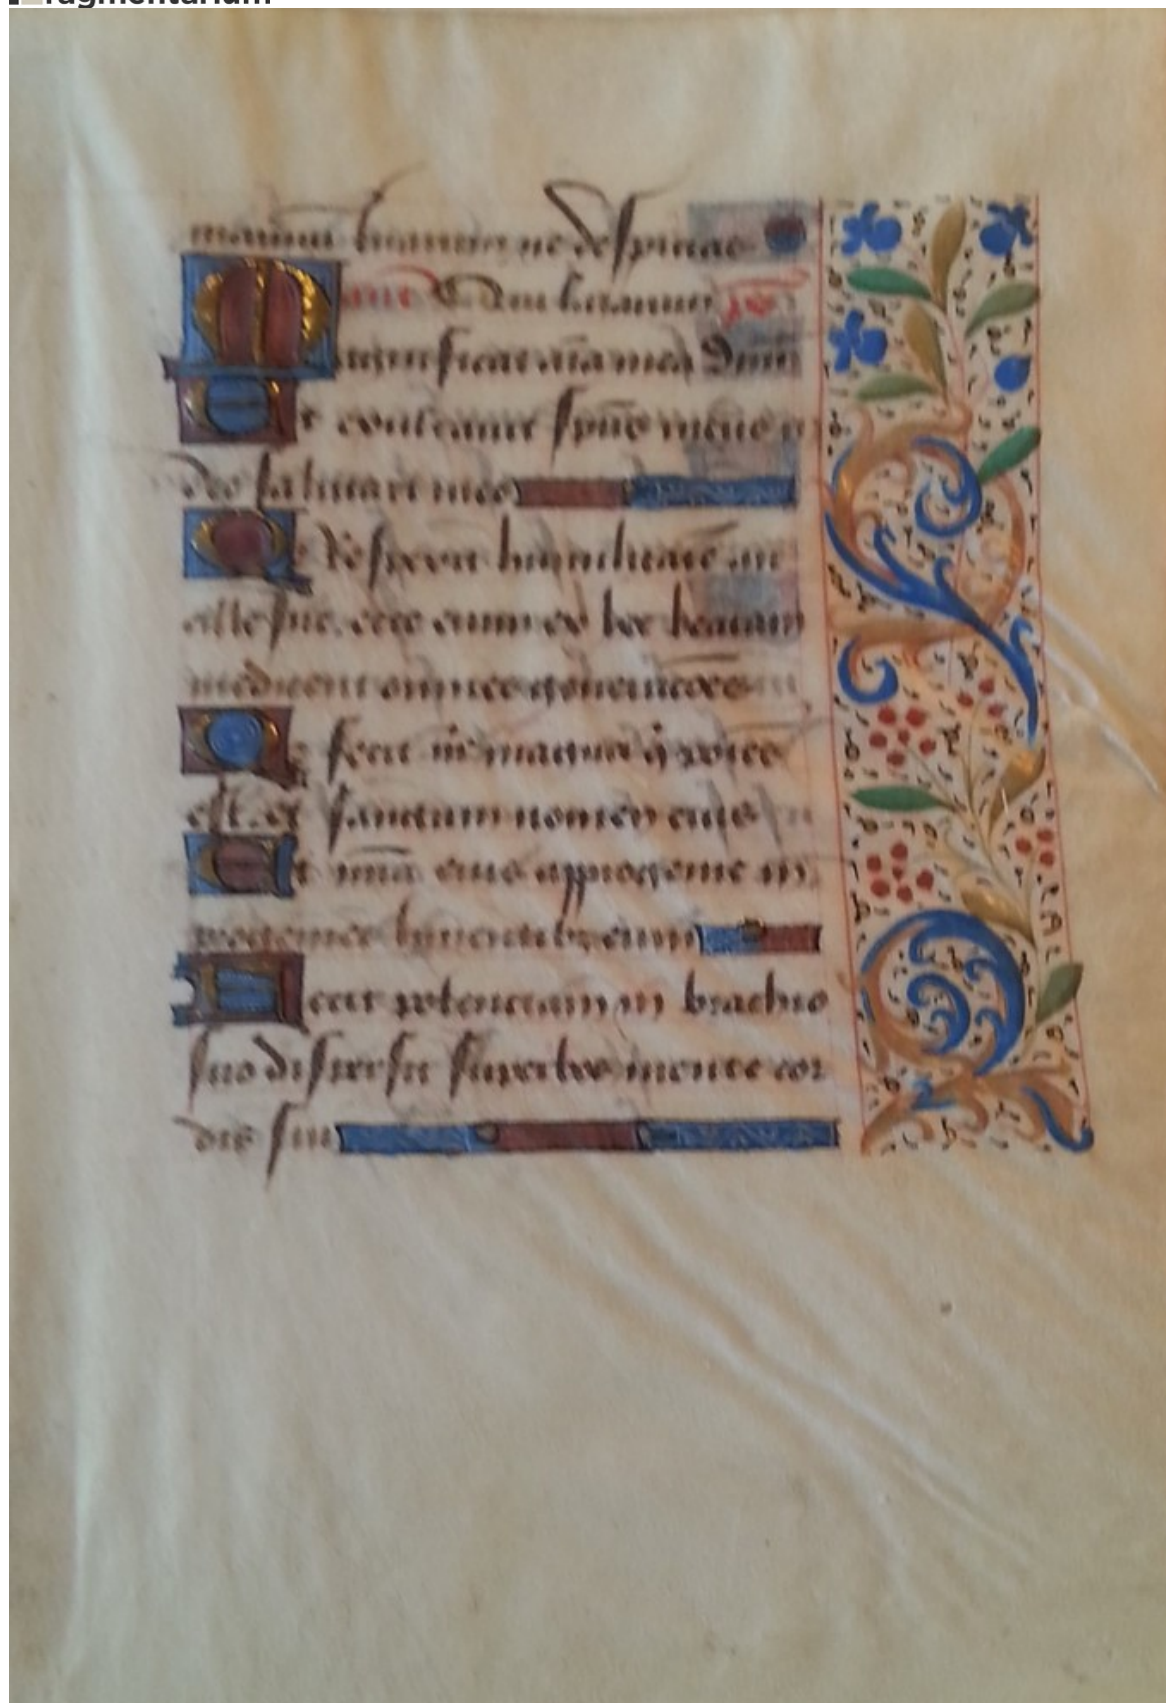 fragmentarium
manuum tuarum ne despicias
ant ps
Magnificat aīa mea dnm
Et exultauit spūs meus i
deo salutari meo
Q respexit humilitatē an
cille sue. ecce enim ex hoc beatam
me dicent omnes generationes
Q fecit m̄ magna q̄ potes
est. et sanctum nomen eius
Et mīa eius a progenie in
progenies timentibꝫ eum
Fecit potenciam in brachio
suo dispersit superbos mente cor
dis sui